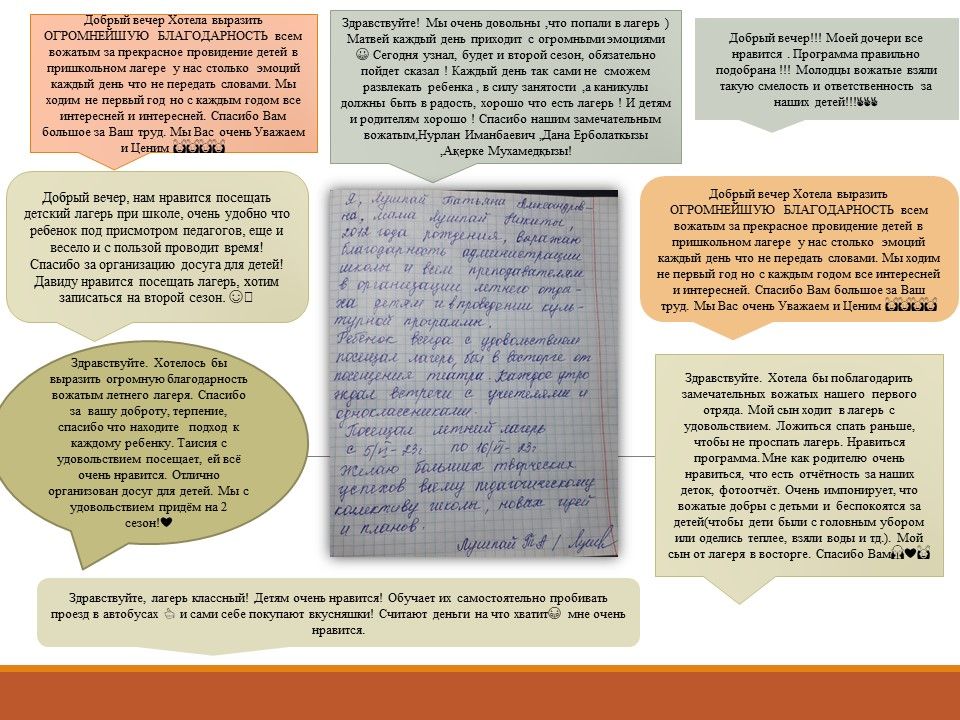 Добрый вечер Хотела выразить
ОГРОМНЕЙШУЮ БЛАГОДАРНОСТЬ всем
вожатым за прекрасное провидение детей в
пришкольном лагере у нас столько эмоций
каждый день что не передать словами. Мы
ходим не первый год но с каждым годом все
интересней и интересней. Спасибо Вам
большое за Ваш труд. Мы Вас очень Уважаем
и Ценим
Здравствуйте! Мы очень довольны ,что попали в лагерь )
Матвей каждый день приходит с огромными эмоциями
😀 Сегодня узнал, будет и второй сезон, обязательно
пойдет сказал ! Каждый день так сами не сможем
развлекать ребенка , в силу занятости ,а каникулы
должны быть в радость, хорошо что есть лагерь ! И детям
и родителям хорошо ! Спасибо нашим замечательным
вожатым,Нурлан Иманбаевич ,Дана Ерболаткызы
,Ақерке Мухамедқызы!
Добрый вечер!!! Моей дочери все
нравится . Программа правильно
подобрана !!! Молодцы вожатые взяли
такую смелость и ответственность за
наших детей!!!
Добрый вечер, нам нравится посещать
детский лагерь при школе, очень удобно что
ребенок под присмотром педагогов, еще и
весело и с пользой проводит время!
Спасибо за организацию досуга для детей!
Давиду нравится посещать лагерь, хотим
записаться на второй сезон. ☺
Я, Лушпай Татьяна Александров-
на, мама Лушпай Никиты,
2012 года рождения, выражаю
благодарность администрации
школы и всем преподавателям
в организации летнего отды-
ха детям и в проведении куль-
турной программы.
Ребёнок всегда с удовольствием
посещал лагерь, был в восторге от
посещения театра. Каждое утро
ждал встречи с учителями и
одноклассниками.
Посещал летний лагерь
с 5/VI-23г по 16/VI-23г
Желаю больших творческих
успехов всему педагогическому
колективу школы, новых идей
и планов.
Лушпай ТА/
Добрый вечер Хотела выразить
ОГРОМНЕЙШУЮ БЛАГОДАРНОСТЬ всем
вожатым за прекрасное провидение детей в
пришкольном лагере у нас столько эмоций
каждый день что не передать словами. Мы ходим
не первый год но с каждым годом все интересней
и интересней. Спасибо Вам большое за Ваш
труд. Мы Вас очень Уважаем и Ценим
Здравствуйте. Хотелось бы
выразить огромную благодарность
вожатым летнего лагеря. Спасибо
за вашу доброту, терпение,
спасибо что находите подход к
каждому ребенку. Таисия с
удовольствием посещает, ей всё
очень нравится. Отлично
организован досуг для детей. Мы с
удовольствием придём на 2
сезон!❤
Здравствуйте. Хотела бы поблагодарить
замечательных вожатых нашего первого
отряда. Мой сын ходит в лагерь с
удовольствием. Ложиться спать раньше,
чтобы не проспать лагерь. Нравиться
программа. Мне как родителю очень
нравиться, что есть отчётность за наших
деток, фотоотчёт. Очень импонирует, что
вожатые добры с детьми и беспокоятся за
детей(чтобы дети были с головным убором
или оделись теплее, взяли воды и тд.). Мой
сын от лагеря в восторге. Спасибо Вам
Здравствуйте, лагерь классный! Детям очень нравится! Обучает их самостоятельно пробивать
проезд в автобусах 👍 и сами себе покупают вкусняшки! Считают деньги на что хватит😂 мне очень
нравится.